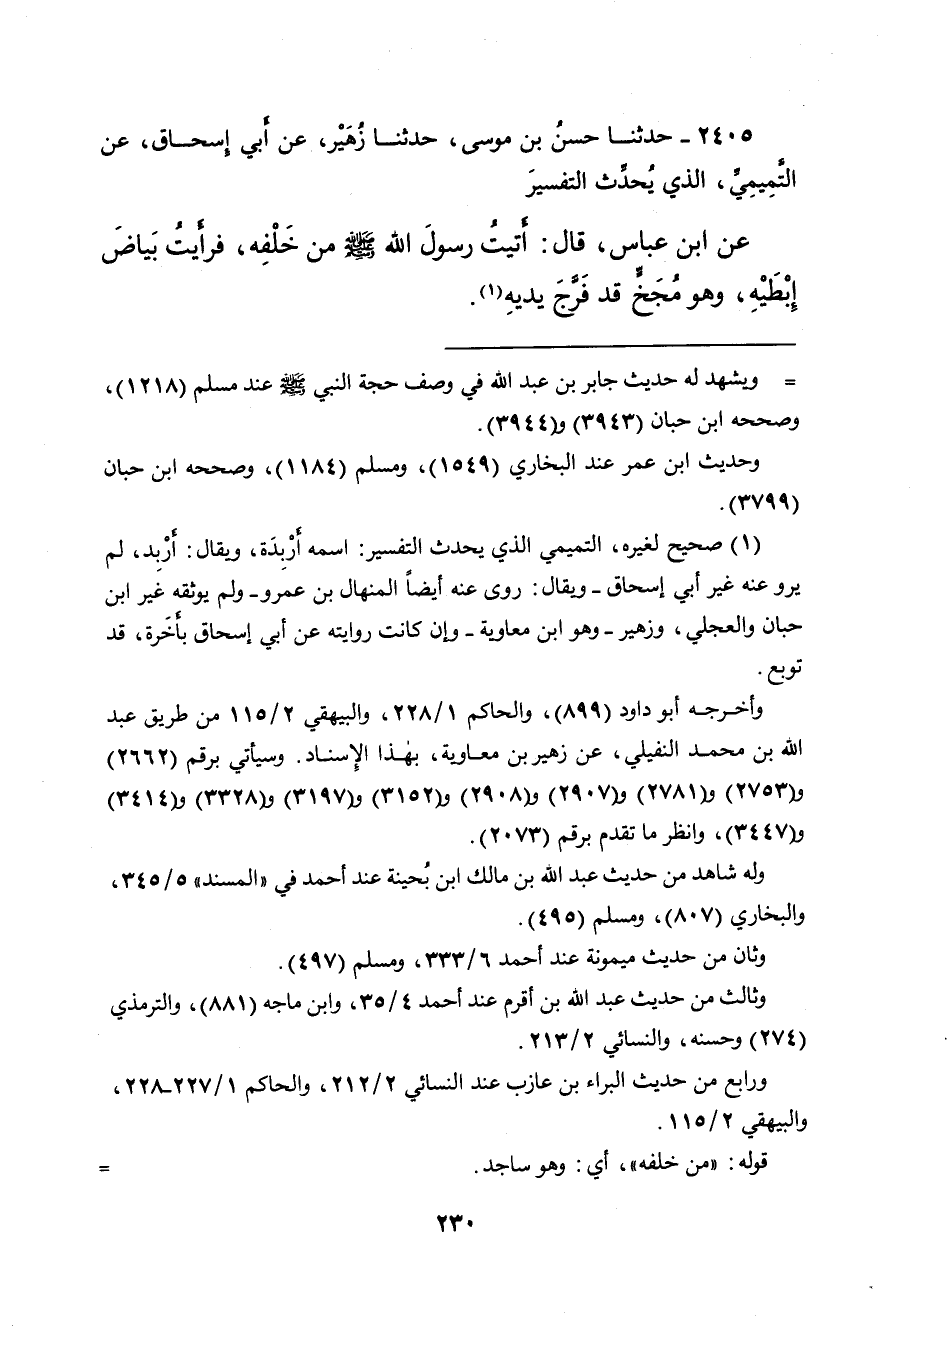 ٢٤٠٥ - حدثنا حسنُ بن موسى، حدثنا زُهَيْر، عن أَبي إسحاق، عن
التَّمِيميِّ، الذي يُحدِّث التفسيرَ
عن ابن عباس، قال: أَتيتُ رسولَ الله ﷺ من خَلْفِه، فرأَيتُ بَياضَ
إبْطَيْهِ، وهو مُجَخٍّ قد فَرَّجَ يديهِ(١).
= ويشهد له حديث جابر بن عبد الله في وصف حجة النبي ﷺ عند مسلم (١٢١٨)،
وصححه ابن حبان (٣٩٤٣) و(٣٩٤٤).
وحديث ابن عمر عند البخاري (١٥٤٩)، ومسلم (١١٨٤)، وصححه ابن حبان
(٣٧٩٩).
(١) صحيح لغيره، التميمي الذي يحدث التفسير: اسمه أَرْبِدَة، ويقال: أَرْبِد، لم
يرو عنه غير أبي إسحاق - ويقال: روى عنه أيضاً المنهال بن عمرو- ولم يوثقه غير ابن
حبان والعجلي، وزهير - وهو ابن معاوية - وإن كانت روايته عن أبي إسحاق بأَخَرة، قد
توبع.
وأخرجه أبو داود (٨٩٩)، والحاكم ٢٢٨/١، والبيهقي ١١٥/٢ من طريق عبد
الله بن محمد النفيلي، عن زهير بن معاوية، بهٰذا الإسناد. وسيأتي برقم (٢٦٦٢)
و(٢٧٥٣) و(٢٧٨١) و(٢٩٠٧) و(٢٩٠٨) و(٣١٥٢) و(٣١٩٧) و(٣٣٢٨) و(٣٤١٤)
و(٣٤٤٧)، وانظر ما تقدم برقم (٢٠٧٣).
وله شاهد من حديث عبد الله بن مالك ابن بُحينة عند أحمد في «المسند» ٣٤٥/٥،
والبخاري (٨٠٧)، ومسلم (٤٩٥).
وثان من حديث ميمونة عند أحمد ٣٣٣/٦، ومسلم (٤٩٧).
وثالث من حديث عبد الله بن أقرم عند أحمد ٣٥/٤، وابن ماجه (٨٨١)، والترمذي
(٢٧٤) وحسنه، والنسائي ٢١٣/٢.
ورابع من حديث البراء بن عازب عند النسائي ٢١٢/٢، والحاكم ٢٢٧/١-٢٢٨،
والبيهقي ١١٥/٢.
قوله: «من خلفه»، أي: وهو ساجد. =
٢٣٠